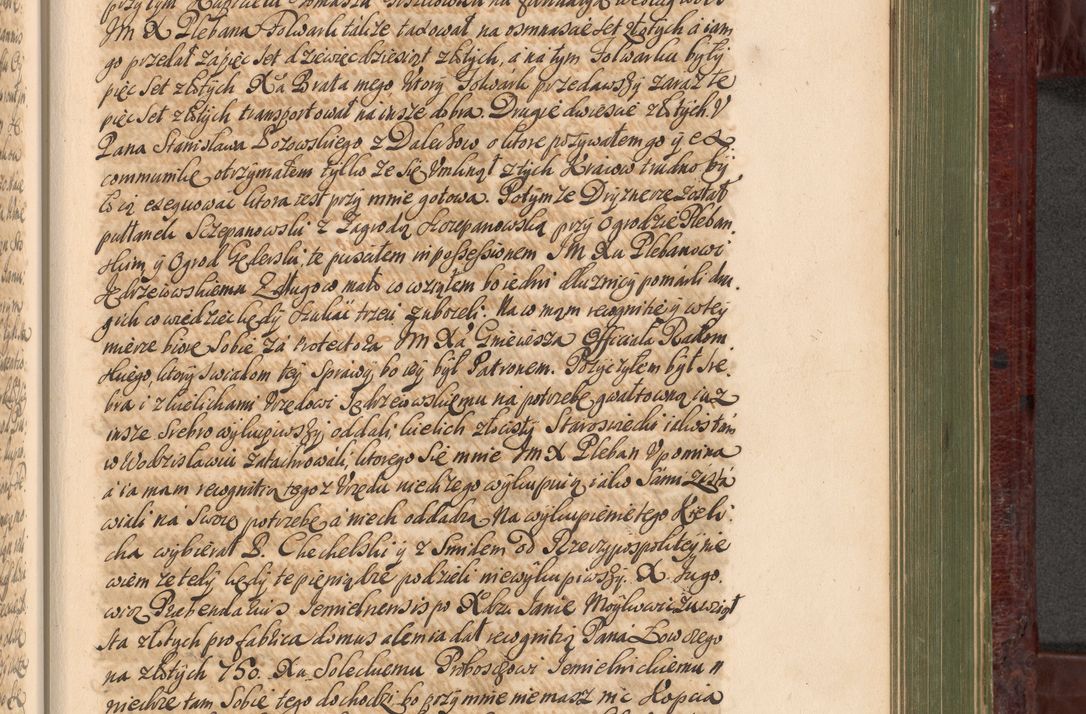 JM X Plebana Folwark także taxował na osmnascie set złotych a iam
go przedał za pięc set dziewięcdziesiąt złotych, a na tym Folwarku były
pięc set złotych Xa Brata mego ktory Folwark przedawszy zaraz te
pięc set złotych transportował na insze dobra. Drugie dwiescie złotych V
Pana Stanisława Bozowskiego z Daleszow o ktore pozywałem go y ex
communikę otrzymałem tylko ze się Vmknął z tych Kraiow trudno by
ło ią exequować ktora iest przy mnie gotowa. Potym ze Dryznerę został
pułtanek Sczepanowski z Zagrodą Sczepanowską przy Ogrodzie Pleban
skim y Ogrod Gęderski, te puściłem in possessionem JM Xu Plebanowi
Jędrzeiowskiemu Z długow mało co wziąłem bo iedni dłuznicy pomarli dru
gich co wiedziec kędy szukać trzeci zubozeli. Na co mam recognitię y w tey
mierze biorę Sobie za Protectora JM Xa Gnieiesza Officiała Radom
skiego, ktory swiadom tey sprawy bo iey był Patronem. Pozyczyłem był sre
bra i z kielichami Vrzędowi Jędrzeiowskiemu na potrzebę gwałtowną iuz
insze Srebro wykupiwszy oddali, kielich złocisty Staroswiecki iakos tam
w Wodzisławiu zatachrowali, ktorego się mnie JM X Pleban Vpomina
a ia mam recognitią tego z Vrzędu niechze go wykupuią iako sami zasta
wiali na Swoię potrzebę a niech oddadzą Na wykupienie tego Kieli
cha wybierał P. Chechelski y z Smilem od Rzeczypospolitey nie
wiem ze tedy kędy te pieniądze podzieli niewykupiwszy. X Jugo
wicz Præbendarius Jemielnensis po Xdzu Janie Moykowicz wziął
sta złotych pro fabrica domus alemia dał recognitią Pana Łowczego
na złotych 750. Xa Soleckiemu Proboszczowi Jemielnickiemu n
niechze tam Sobie tego dochodzi, bo przy mnie nie masz nic Kopcia